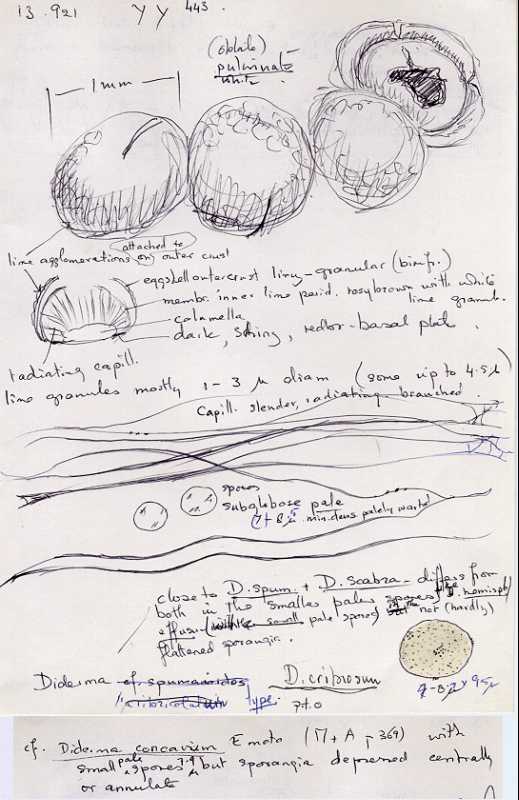 13.921 YY 443.
(oblate)
pulvinate
1mm
attached to
lime agglomerations on outer crust
eggshell outer crust limy-granular (
membr. inner lime perid. rosy brown with white
lime granul.
columella
dark, shiny, basal plate.
radiating capill.
lime granules mostly 1-3 µ diam (some up to 4.5 µ)
Capill. slender, radiating branched.
spores
subglobose pale
minutely palely warted
close to D. spum + D. scabra - differs from
both in the smaller paler spores
pale spores) not (hardly)
flattened sporangia.
Diderma cf. spumarioides D. cribrosum
type.
cf. Diderma concavum Emoto (M + A - 369) with
small pale spores but sporangia depressed centrally
or annulate